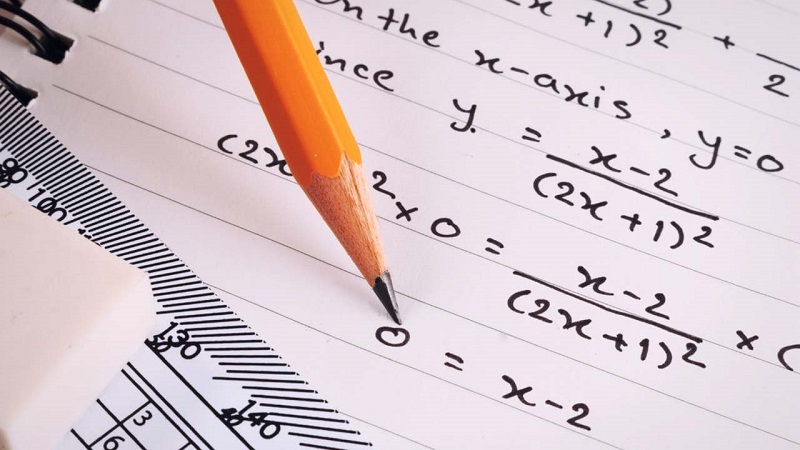 x +1)² + 2
on the x-axis, y=0
ince y = x-2
(2x+1)²
(2x ² x 0 = x-2 x (
(2x+1)²
0 = x-2
80
100
130
140
3
6